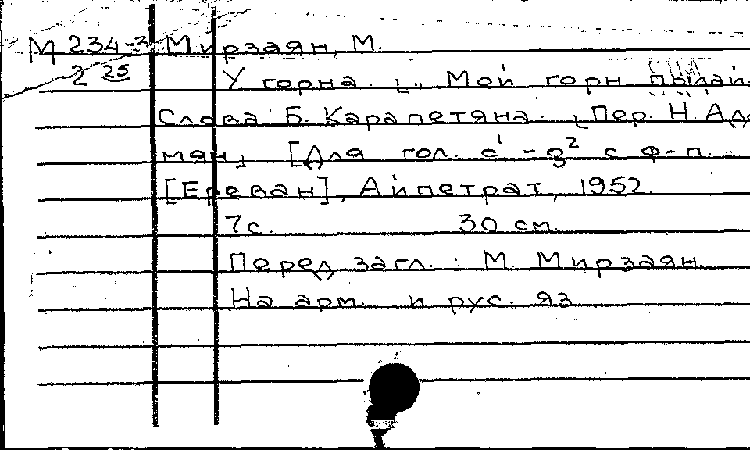 М 234-3 Мирзаян, М.
2 25 У горна. "Мой горн пылай
Слова Б. Карапетяна. Пер. Н. Ада
мян, [Для гол. c¹-g² с ф-п.
[Ереван], Айпетрат, 1952.
7 с. 30 см.
Перед загл.: М. Мирзаян
На арм. и рус. яз